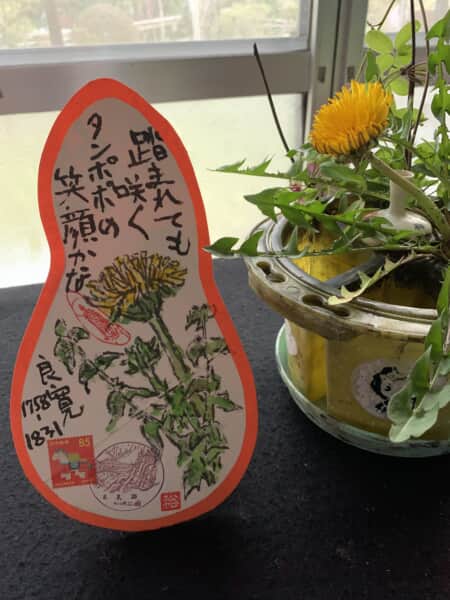 踏まれても
踏咲く
タンポポの
笑顔かな
良寛
1758
1831
85
松